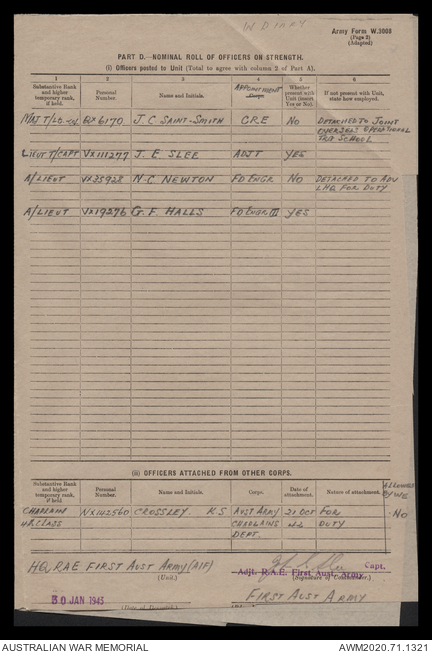 W DIARY
Army Form W.3008
(Page 2)
(Adapted)
PART D.—NOMINAL ROLL OF OFFICERS ON STRENGTH.
(i) Officers posted to Unit (Total to agree with column 2 of Part A).
1 2 3 4 5 6
Substantive Rank and higher temporary rank, if held. Personal Number. Name and Initials. APPOINTMENT Corps. Whether present with Unit (Insert Yes or No). If not present with Unit, state how employed.
MAJ T/LT-COL QX6170 J. C SAINT-SMITH CRE NO DETACHED TO JOINT
OVERSEAS OPERATIONAL
TRG SCHOOL
LIEUT T/CAPT VX111277 J. E SLEE ADJT YES
A/LIEUT VX35928 N. C. NEWTON FD ENGR NO DETACHED TO ADV
LHQ FOR DUTY
A/LIEUT VX19276 G. F. HALLS FD ENGR III YES
(ii) OFFICERS ATTACHED FROM OTHER CORPS.
Substantive Rank and higher temporary rank, if held Personal Number. Name and Initials. Corps. Date of attachment. Nature of attachment. ALLOWED BY WE
CHAPLAIN NX142560 CROSSLEY. K S AUST ARMY 21 OCT FOR NO
CLASS CHAPLAINS 44 DUTY
DEPT.
HQ, RAE FIRST AUST ARMY (AIF)
(Unit.)
Capt.
Adjt. R.A.E. First Aust. Army
(Signature of Commander.)
30 JAN 1945
FIRST AUST ARMY
AUSTRALIAN WAR MEMORIAL
AWM2020.71.1321